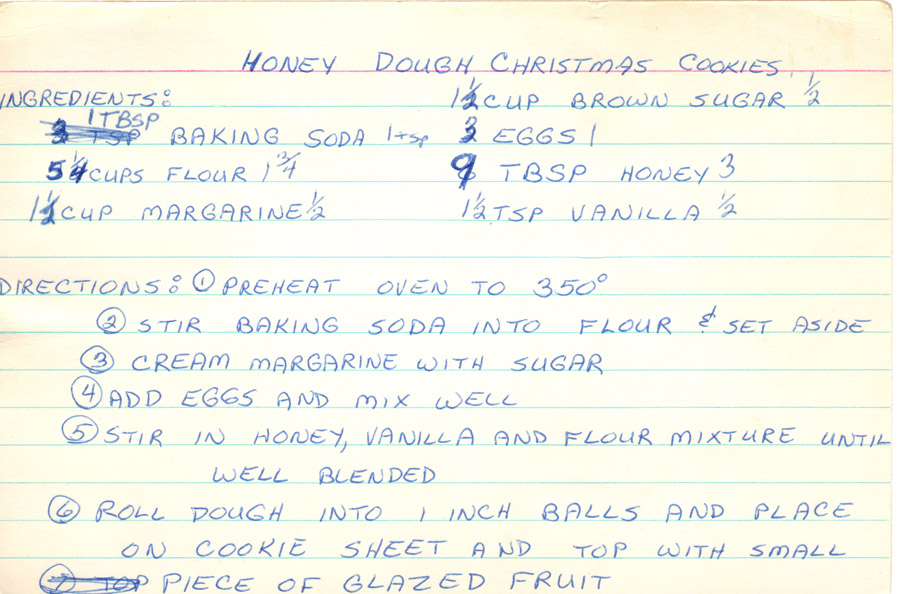 HONEY DOUGH CHRISTMAS COOKIES
INGREDIENTS:
1 TBSP
3 TSP BAKING SODA 1 tsp
5 1/4 CUPS FLOUR 1 3/4
1 1/2 CUP MARGARINE 1/2
1 1/2 CUP BROWN SUGAR 1/2
3 EGGS 1
9 TBSP HONEY 3
1 1/2 TSP VANILLA 1/2
DIRECTIONS: ① PREHEAT OVEN TO 350°
② STIR BAKING SODA INTO FLOUR & SET ASIDE
③ CREAM MARGARINE WITH SUGAR
④ ADD EGGS AND MIX WELL
⑤ STIR IN HONEY, VANILLA AND FLOUR MIXTURE UNTIL
WELL BLENDED
⑥ ROLL DOUGH INTO 1 INCH BALLS AND PLACE
ON COOKIE SHEET AND TOP WITH SMALL
⑦ TOP PIECE OF GLAZED FRUIT